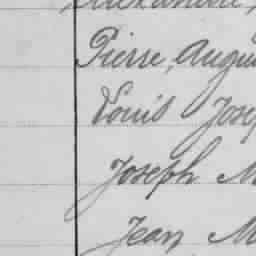 Pierre, Augu
Louis Josep
Joseph M
Jean M